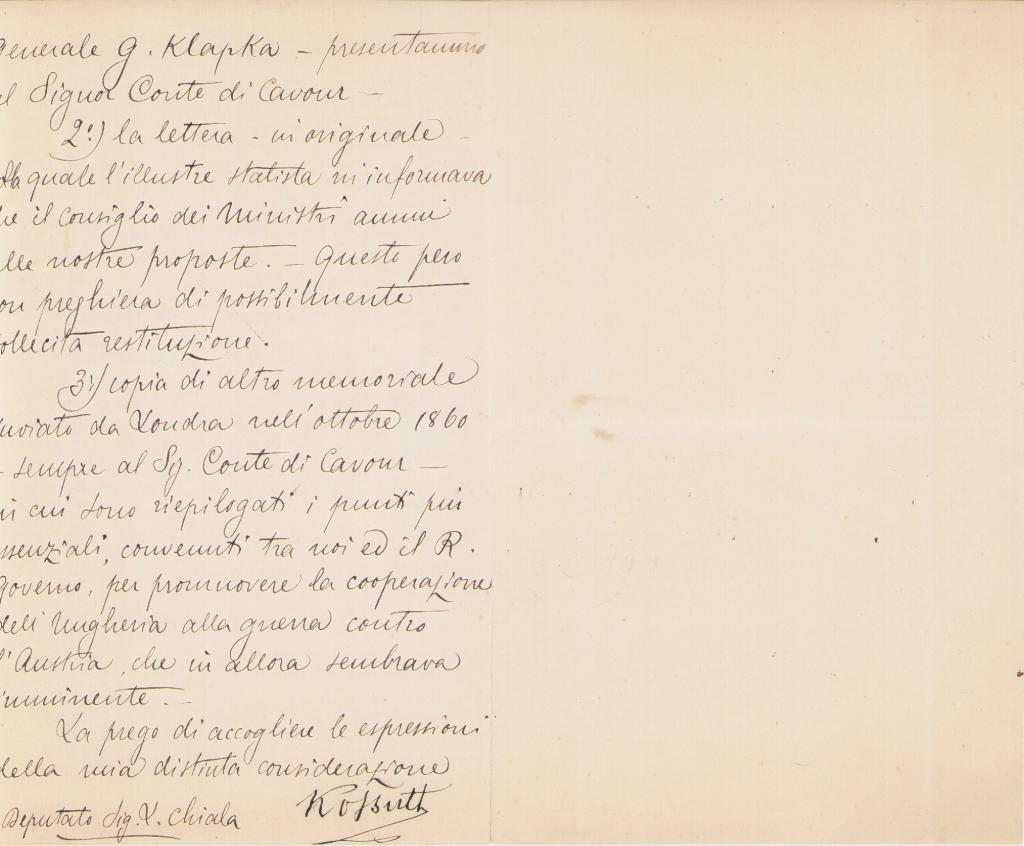 Generale G. Klapka – presentammo
al Signor Conte di Cavour –
2º.) la lettera - in originale –
la quale l'illustre statista m'informava
che il consiglio dei Ministri annuì
alle nostre proposte. – Questo però
con preghiera di possibilmente
sollecita restituzione.
3º) copia di altro memoriale
inviato da Londra nell'ottobre 1860
– sempre al Sg. Conte di Cavour –
in cui sono riepilogati i punti più
essenziali, convenuti tra noi ed il R.
Governo, per promuovere la cooperazione
dell'Ungheria alla guerra contro
l'Austria, che in allora sembrava
imminente. –
La prego di accogliere le espressioni
della mia distinta considerazione
Kossuth
Deputato Sig. L. Chiala